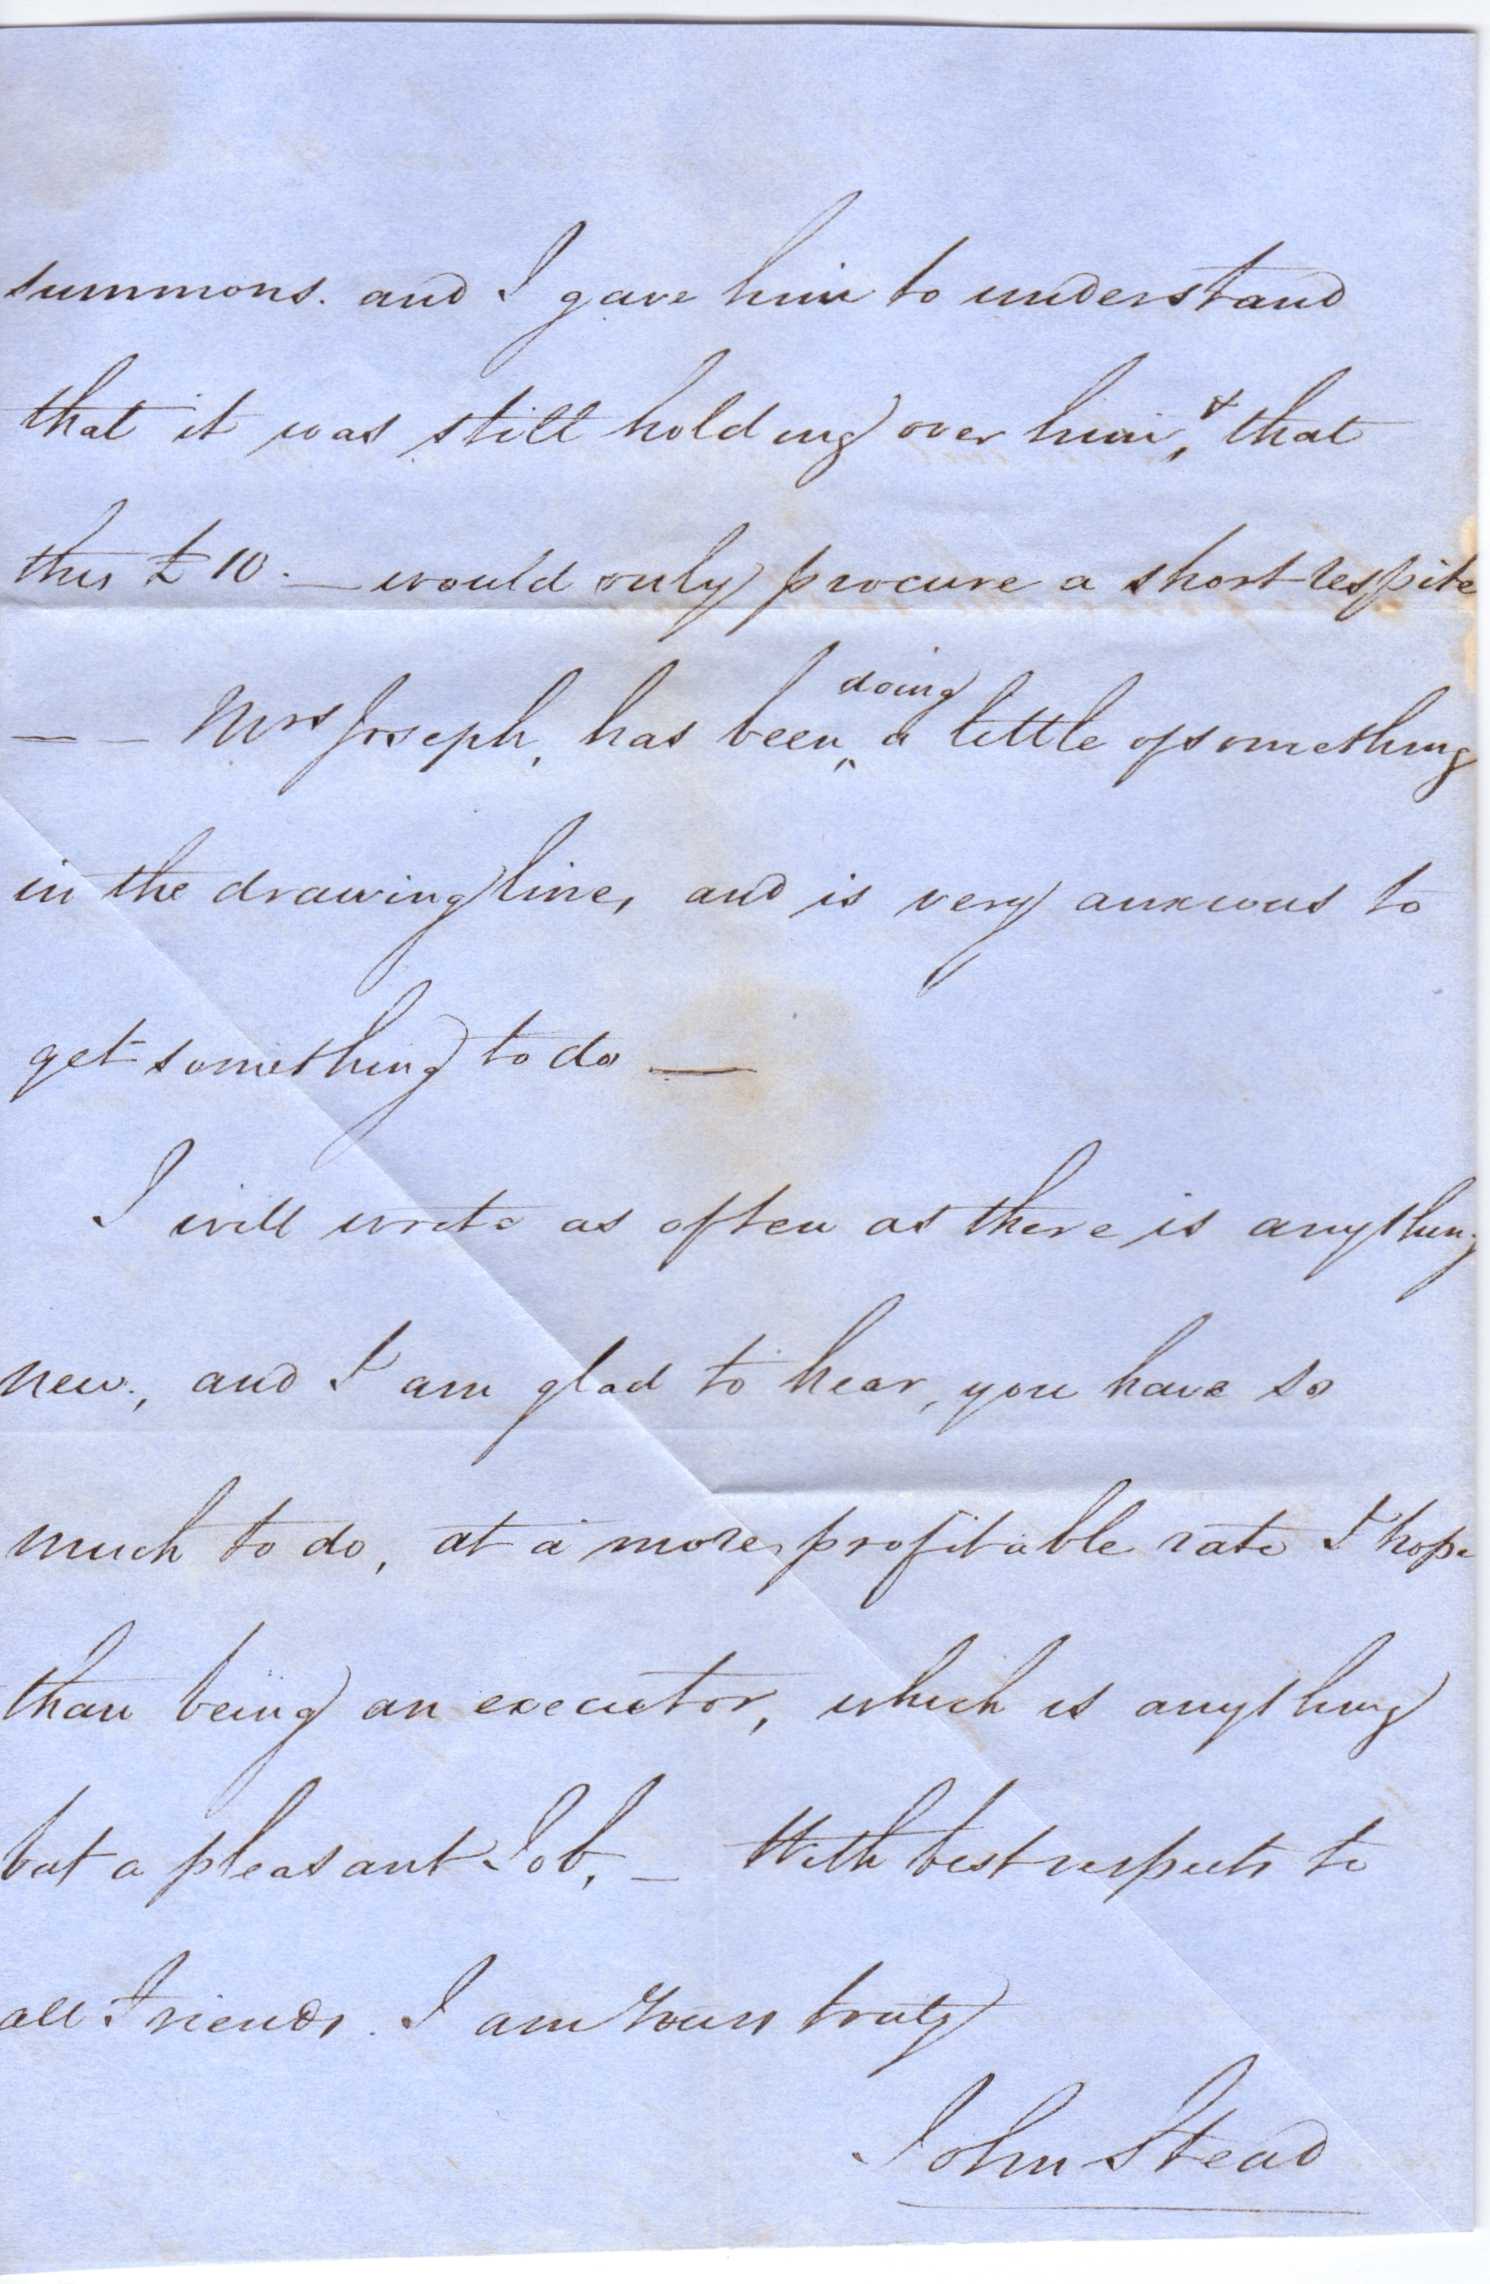 summons. and I gave him to understand
that it was still holding over him, & that
this £10. — would only procure a short respite
— — Mrs Joseph, has been doing a little of something
in the drawing line, and is very anxious to
get something to do —
I will write as often as there is anything
new., and I am glad to hear, you have so
much to do, at a more profitable rate I hope
than being an executor, which is anything
but a pleasant Job, — With best respects to
all Friends. I am Yours truly
John Stead